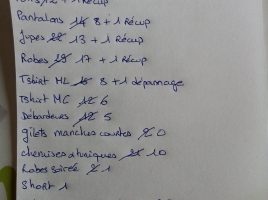 + 1 Récup
Pantalons 14 8 + 1 Récup
Jupes 22 13 + 1 Récup
Robes 28 17 + 1 Récup
Tshirt ML 15 8 + 1 dépannage
Tshirt MC 12 6
Débardeurs 12 5
gilets manches courtes 2 0
chemises & tuniques 21 10
Robes soirée 2 1
Short 1